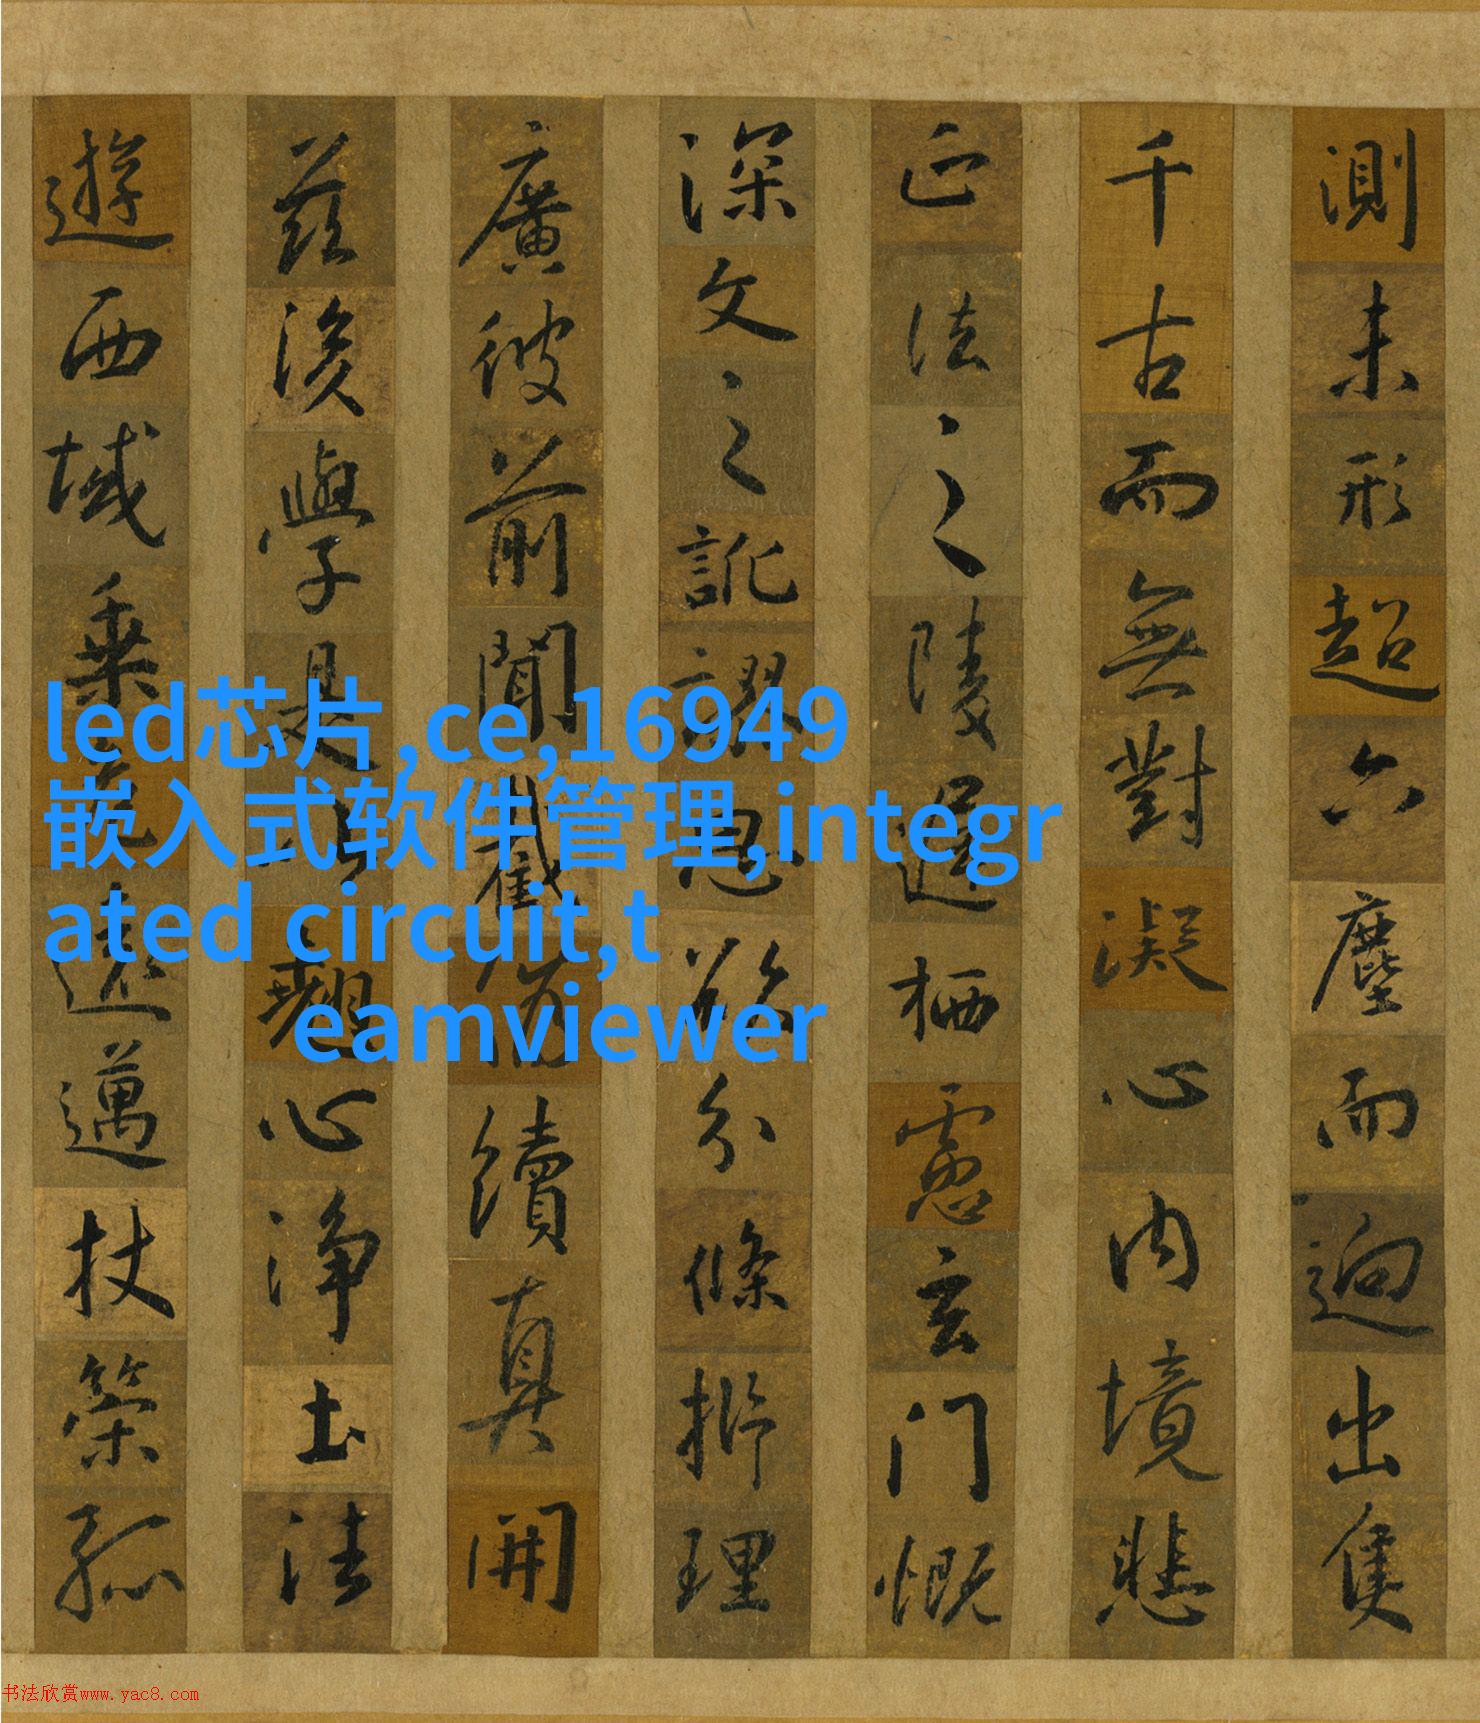 測未形超六塵而迥出隻
千古而無對凝心內境悲
正法之陵遲栖慮玄門慨
深文之訛謬思欲分條析理
廣彼前聞截偽續真開
茲後學是以翹心淨土法
遊西域乘危遠邁杖策孤
led芯片,ce,16949
嵌入式软件管理,integr
ated circuit,t
eamviewer
书法欣赏www.yac8.com